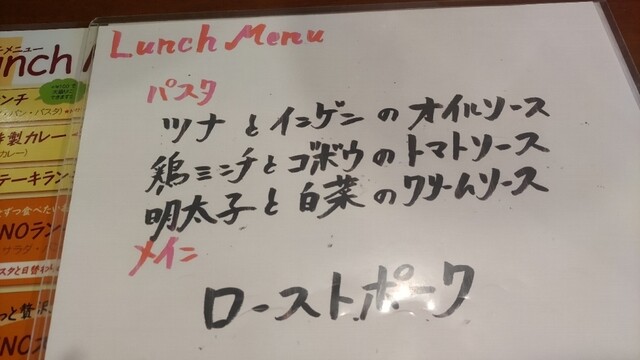 Lunch Menu
パスタ
ツナとインゲンのオイルソース
鶏ミンチとゴボウのトマトソース
明太子と白菜のクリームソース
メイン
ローストポーク
メニュー
unch
ンチ
・パン・パスタ)
製カレー
カレー)
テーキラン
ずつ食べたい
NOラン
サラダ・
スタと日替わ
っと贅沢
NOス